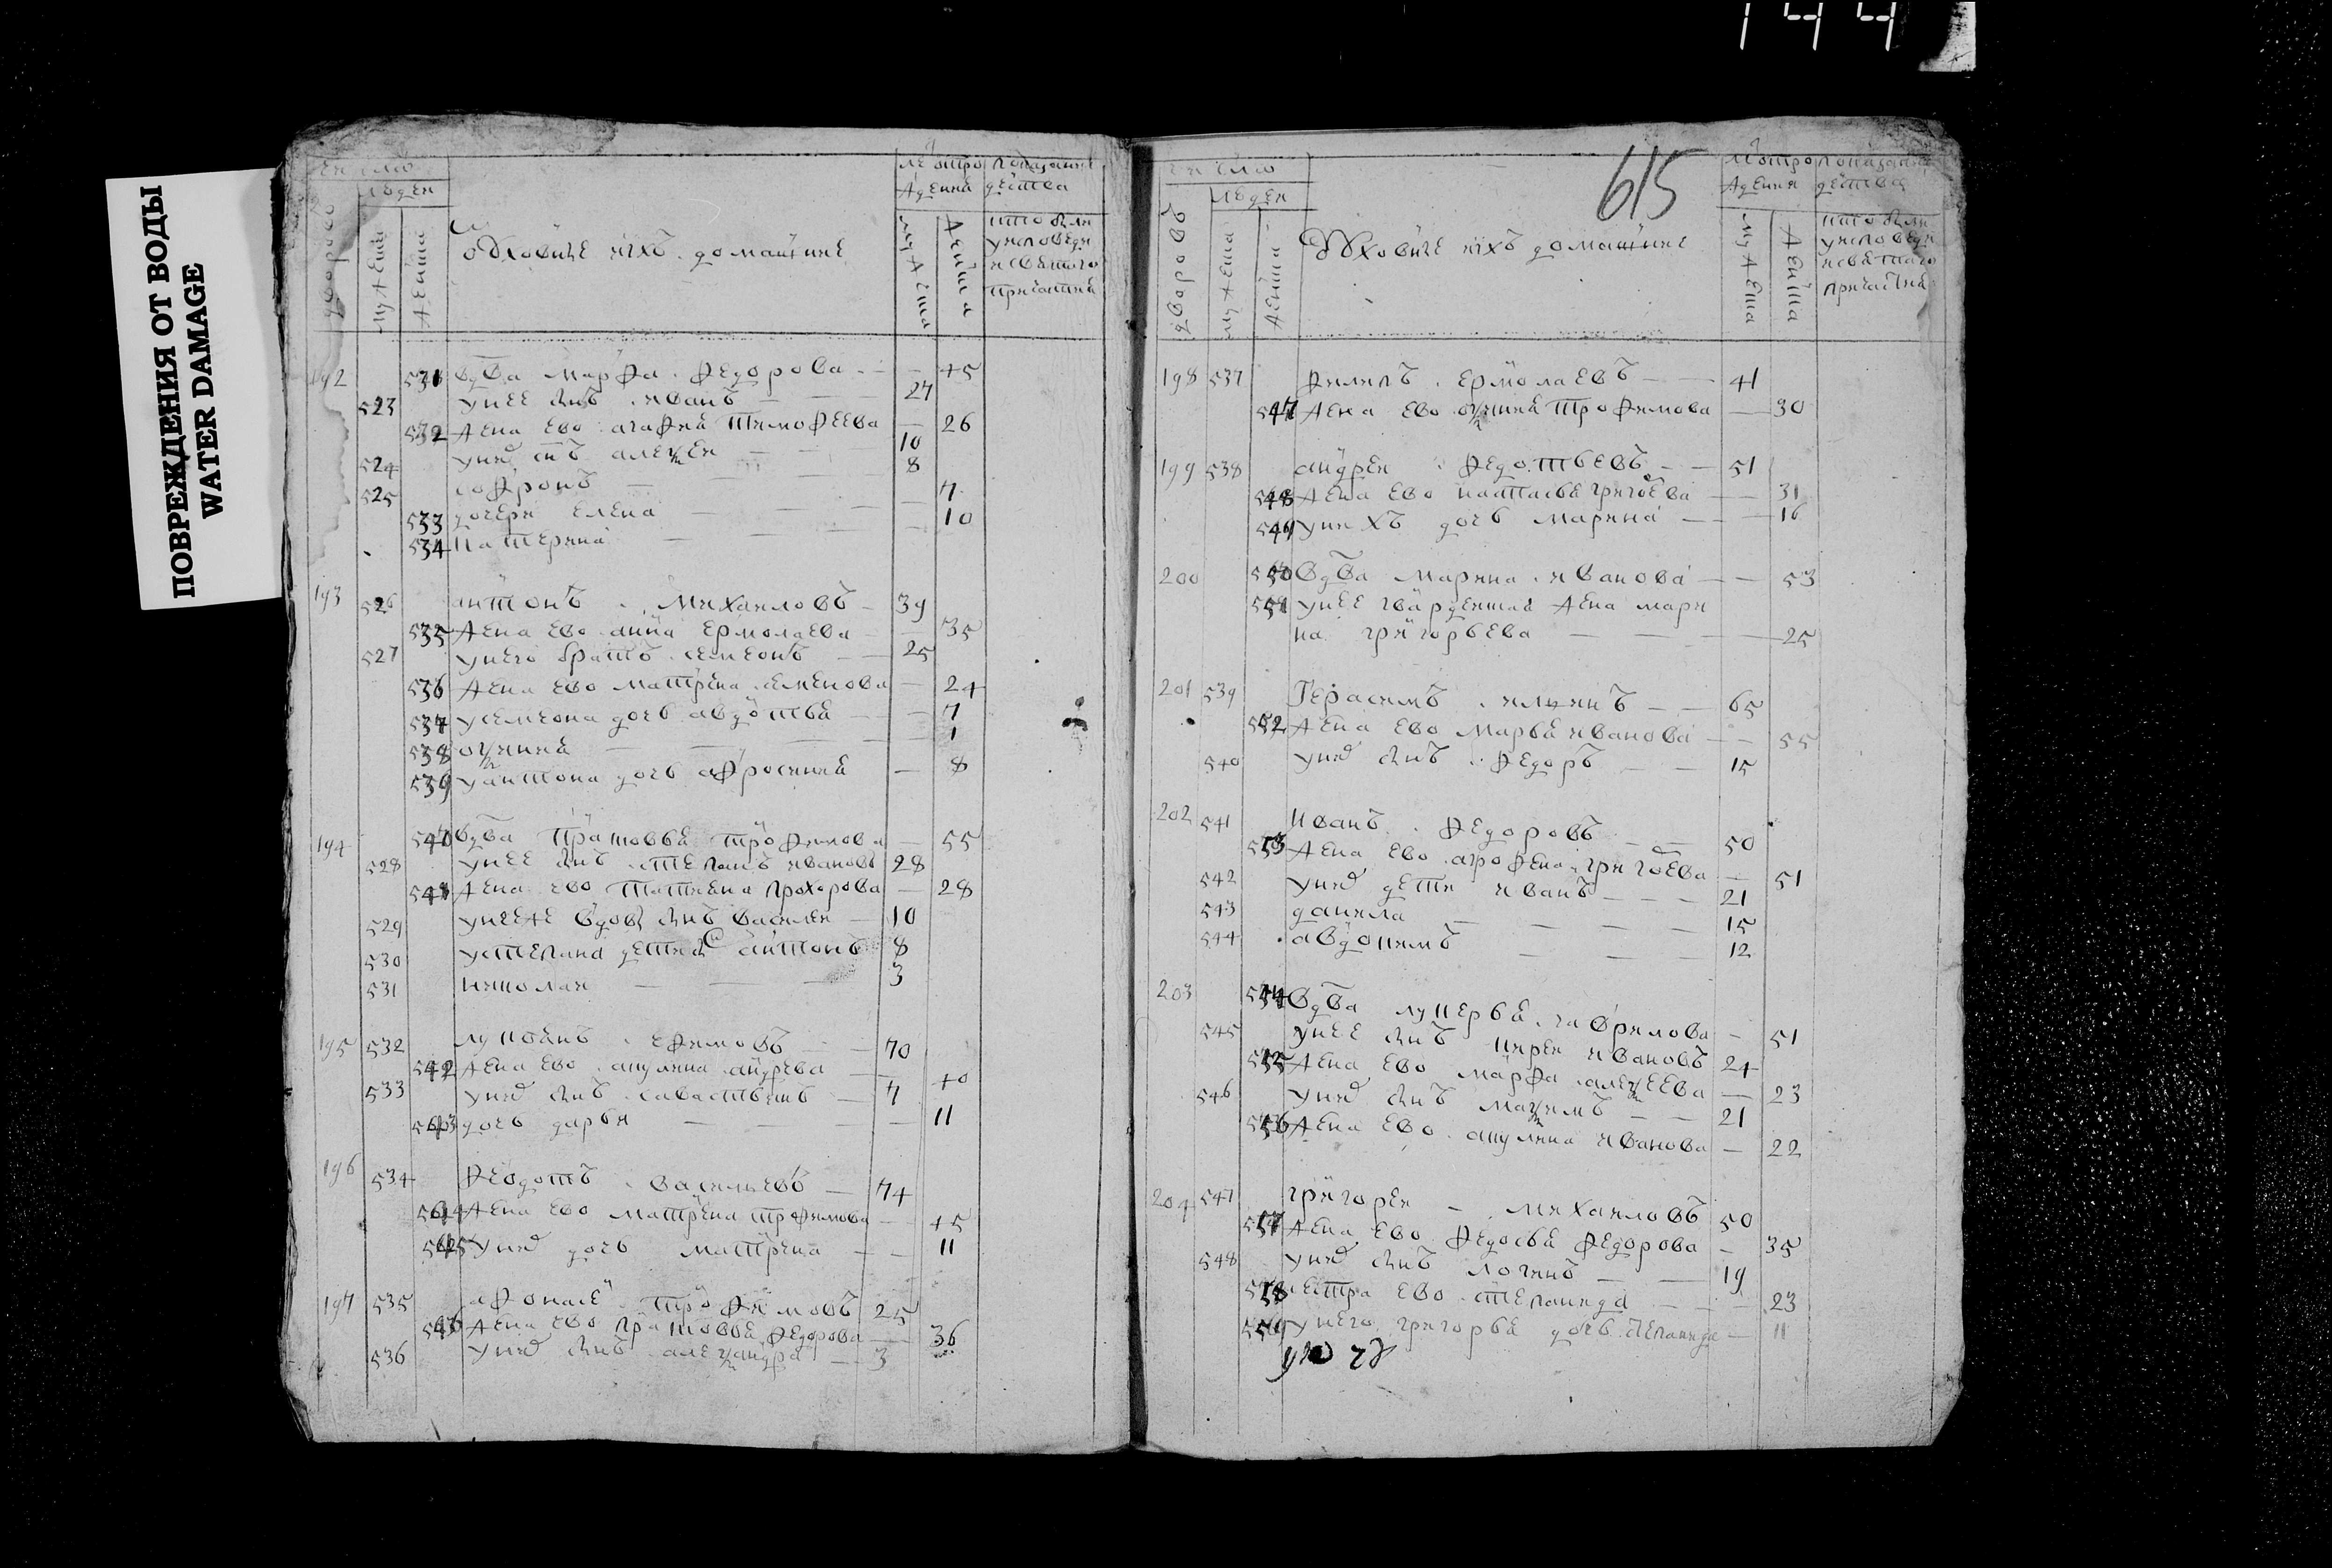 144
ПОВРЕЖДЕНИЯ ОТ ВОДЫ
WATER DAMAGE
число
людей
дворовъ
мужеска
женска
Одховнiе iихъ домашние
лета от рождения
показание действа
мужеска
женска
кто был у исповеди и святаго причастия
192 531 вдва марфа федорова 45
523 у нее снъ иванъ 27
532 жена ево агафия тимофеева 26
524 у них снъ алексеи 10
525 софронъ 8
533 дочери елена 7
534 катерина 10
193 526 антонъ михаиловъ 39
535 жена ево анна ермолаева 35
527 у него братъ семионъ 25
536 жена ево матрена семенова 24
537 у семиона дочь авдотья 7
538 оксиния 1
539 у антона дочь афросиния 8
194 540 вдва прасковья трофимова 55
528 у нее снъ степанъ ивановъ 28
541 жена ево татиена прохорова 28
529 у нее же вдовы снъ василеи 10
530 у степана детеи антонъ 8
531 николаи 3
195 532 лукоянъ ефимовъ 70
542 жена ево акулина андрева 40
533 у них снъ савастьянъ 7
543 дочь дарья 11
196 534 федотъ васильевъ 74
544 жена ево матрена трофимова 45
545 у них дочь матрена 11
197 535 афонасеи трофимовъ 25
546 жена ево прасковья федорова 36
536 у них снъ александра 3
615
число
людей
дворовъ
мужеска
женска
Одховнiе iихъ домашние
лета от рождения
показание действа
мужеска
женска
кто был у исповеди и святаго причастия
198 537 филипъ ермолаевъ 41
547 жена ево оксиния трофимова 30
199 538 андреи федотьевъ 51
548 жена ево настасья григоева 31
549 у них дочь марина 16
200 550 вдва марина иванова 53
551 у нее жена мари
на григорьева 25
201 539 Герасимъ илинъ 65
552 жена ево марья иванова 55
540 у них снъ федоръ 15
202 541 иванъ федоровъ 50
553 жена ево агрофена григоева 51
542 у них дети иванъ 21
543 данила 15
544 авдокимъ 12
203 554 вдва лукерья гаврилова 51
545 у нее снъ киреи ивановъ 24
555 жена ево марфа алексеева 23
546 у них снъ максимъ 21
556 жена ево акулина иванова 22
204 547 григореи михаиловъ 50
557 жена ево федосья федорова 35
548 у них снъ логинъ 19
558 сестра ево степанида 23
559 у него григорья дочь степанида 11